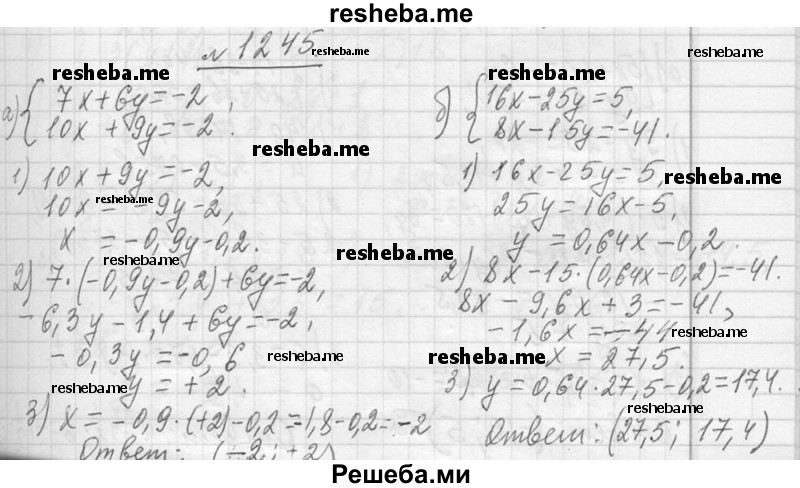 resheba.me
№ 1245 resheba.me
resheba.me
resheba.me
resheba.me
а) { 7x+6y=-2,
10x+9y=-2.
1) 10x+9y=-2,
resheba.me
10x=-9y-2,
resheba.me
x=-0,9y-0,2.
resheba.me
resheba.me
2) 7·(-0,9y-0,2)+6y=-2,
-6,3y-1,4+6y=-2,
-0,3y=-0,6
resheba.me
resheba.me
y=+2.
3) x=-0,9·(+2)-0,2=1,8-0,2=-2
Ответ: (-2; +2)
б) { 16x-25y=5,
8x-15y=-41.
1) 16x-25y=5,
resheba.me
25y=16x-5,
y=0,64x-0,2.
2) 8x-15·(0,64x-0,2)=-41.
8x-9,6x+3=-41,
-1,6x=-44
resheba.me
resheba.me
x=27,5.
3) y=0,64·27,5-0,2=17,4.
resheba.me
Ответ: (27,5; 17,4)
Решеба.ми